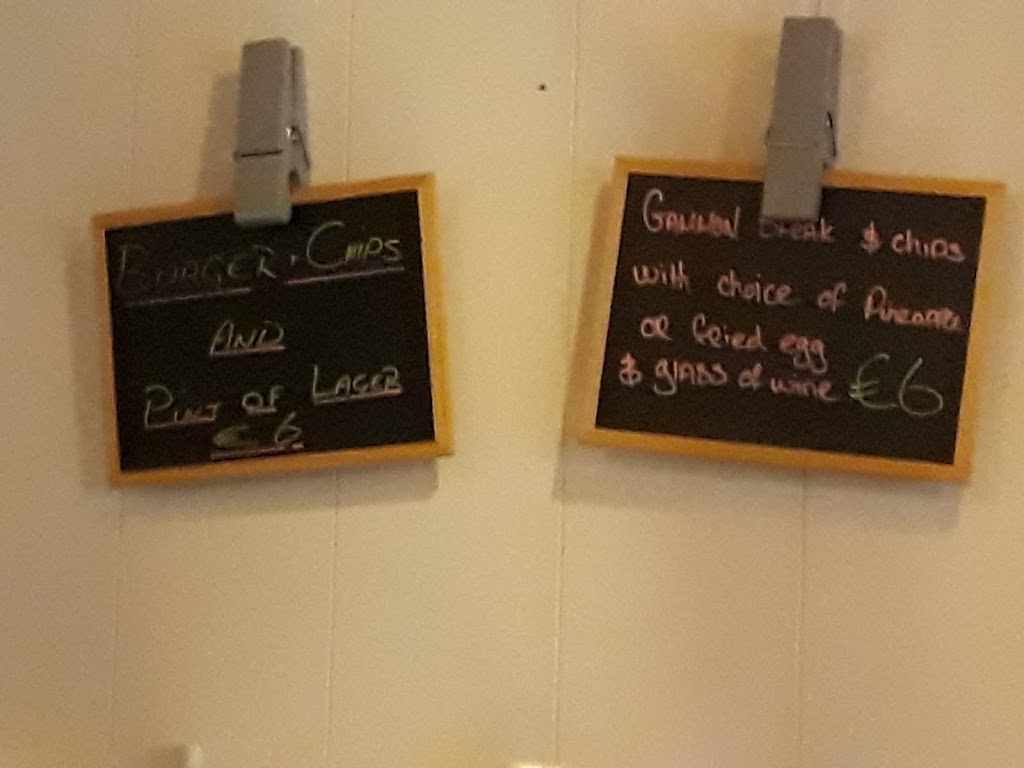 BURGER, CHIPS
AND
PINT OF LAGER
€ 6
GAMMON steak & chips
with choice of Pineapple
or fried egg
& glass of wine €6